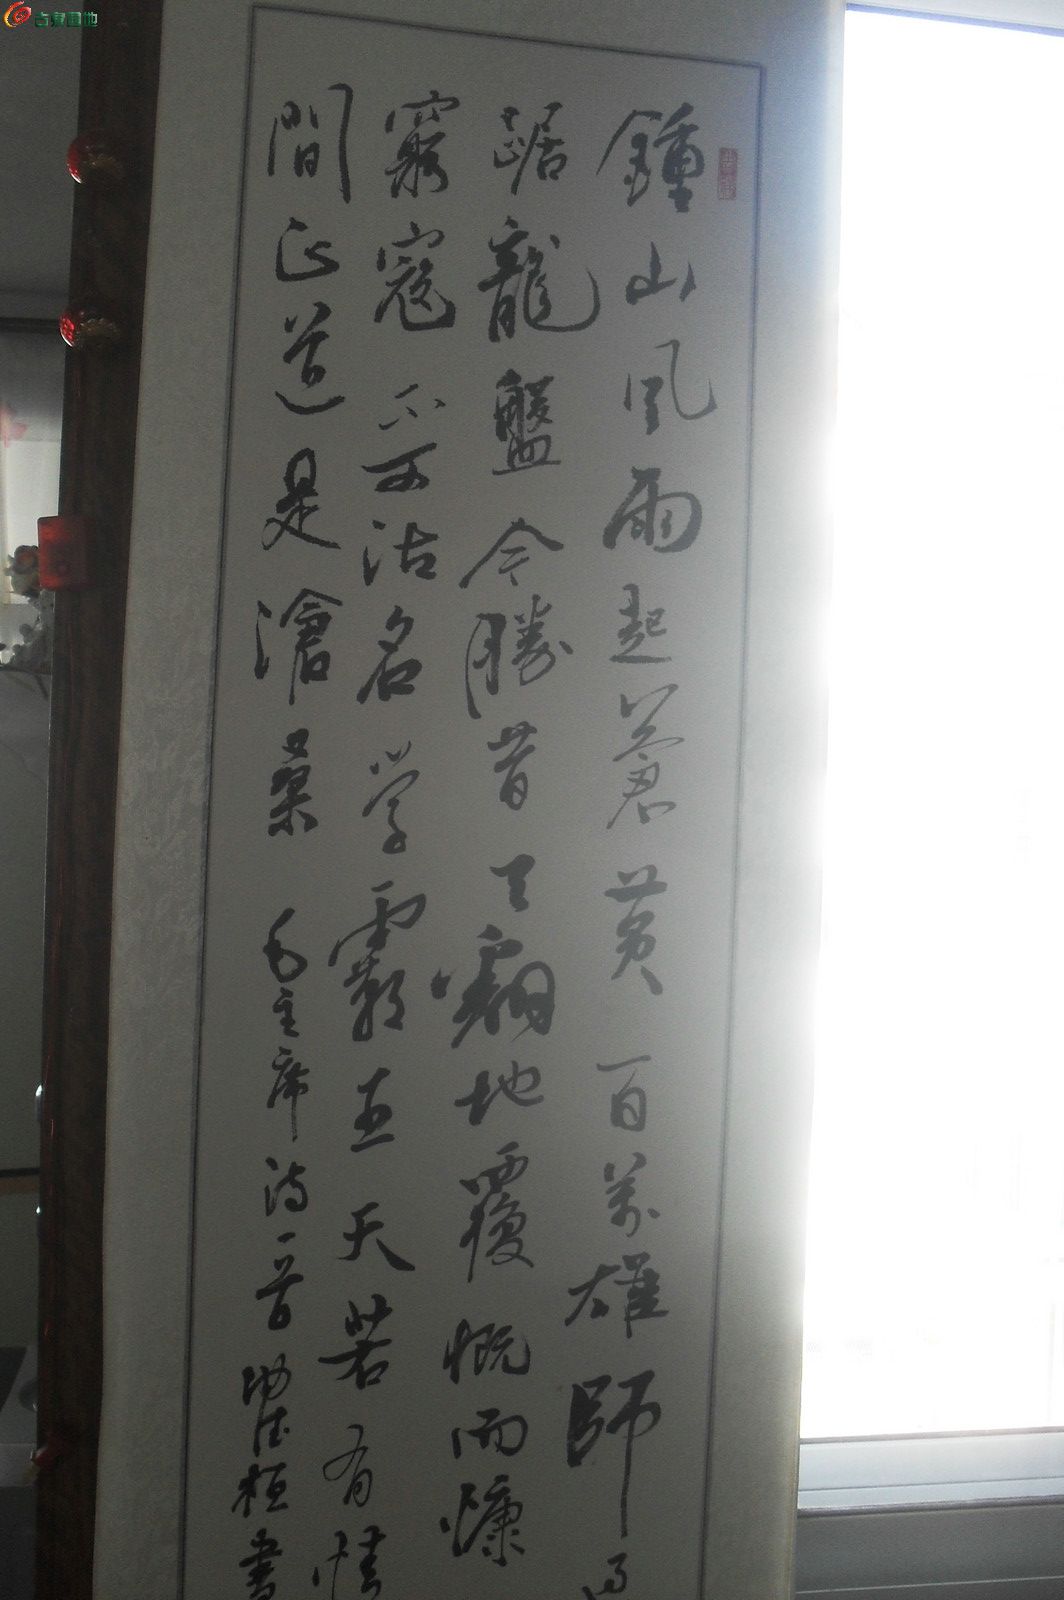 鍾山風雨起蒼黄百萬雄師過
踞龍盤今勝昔天翻地覆慨而慷
窮寇不可沽名学霸王天若有情
間正道是滄桑 毛主席詩一首 桓書
古泉園地